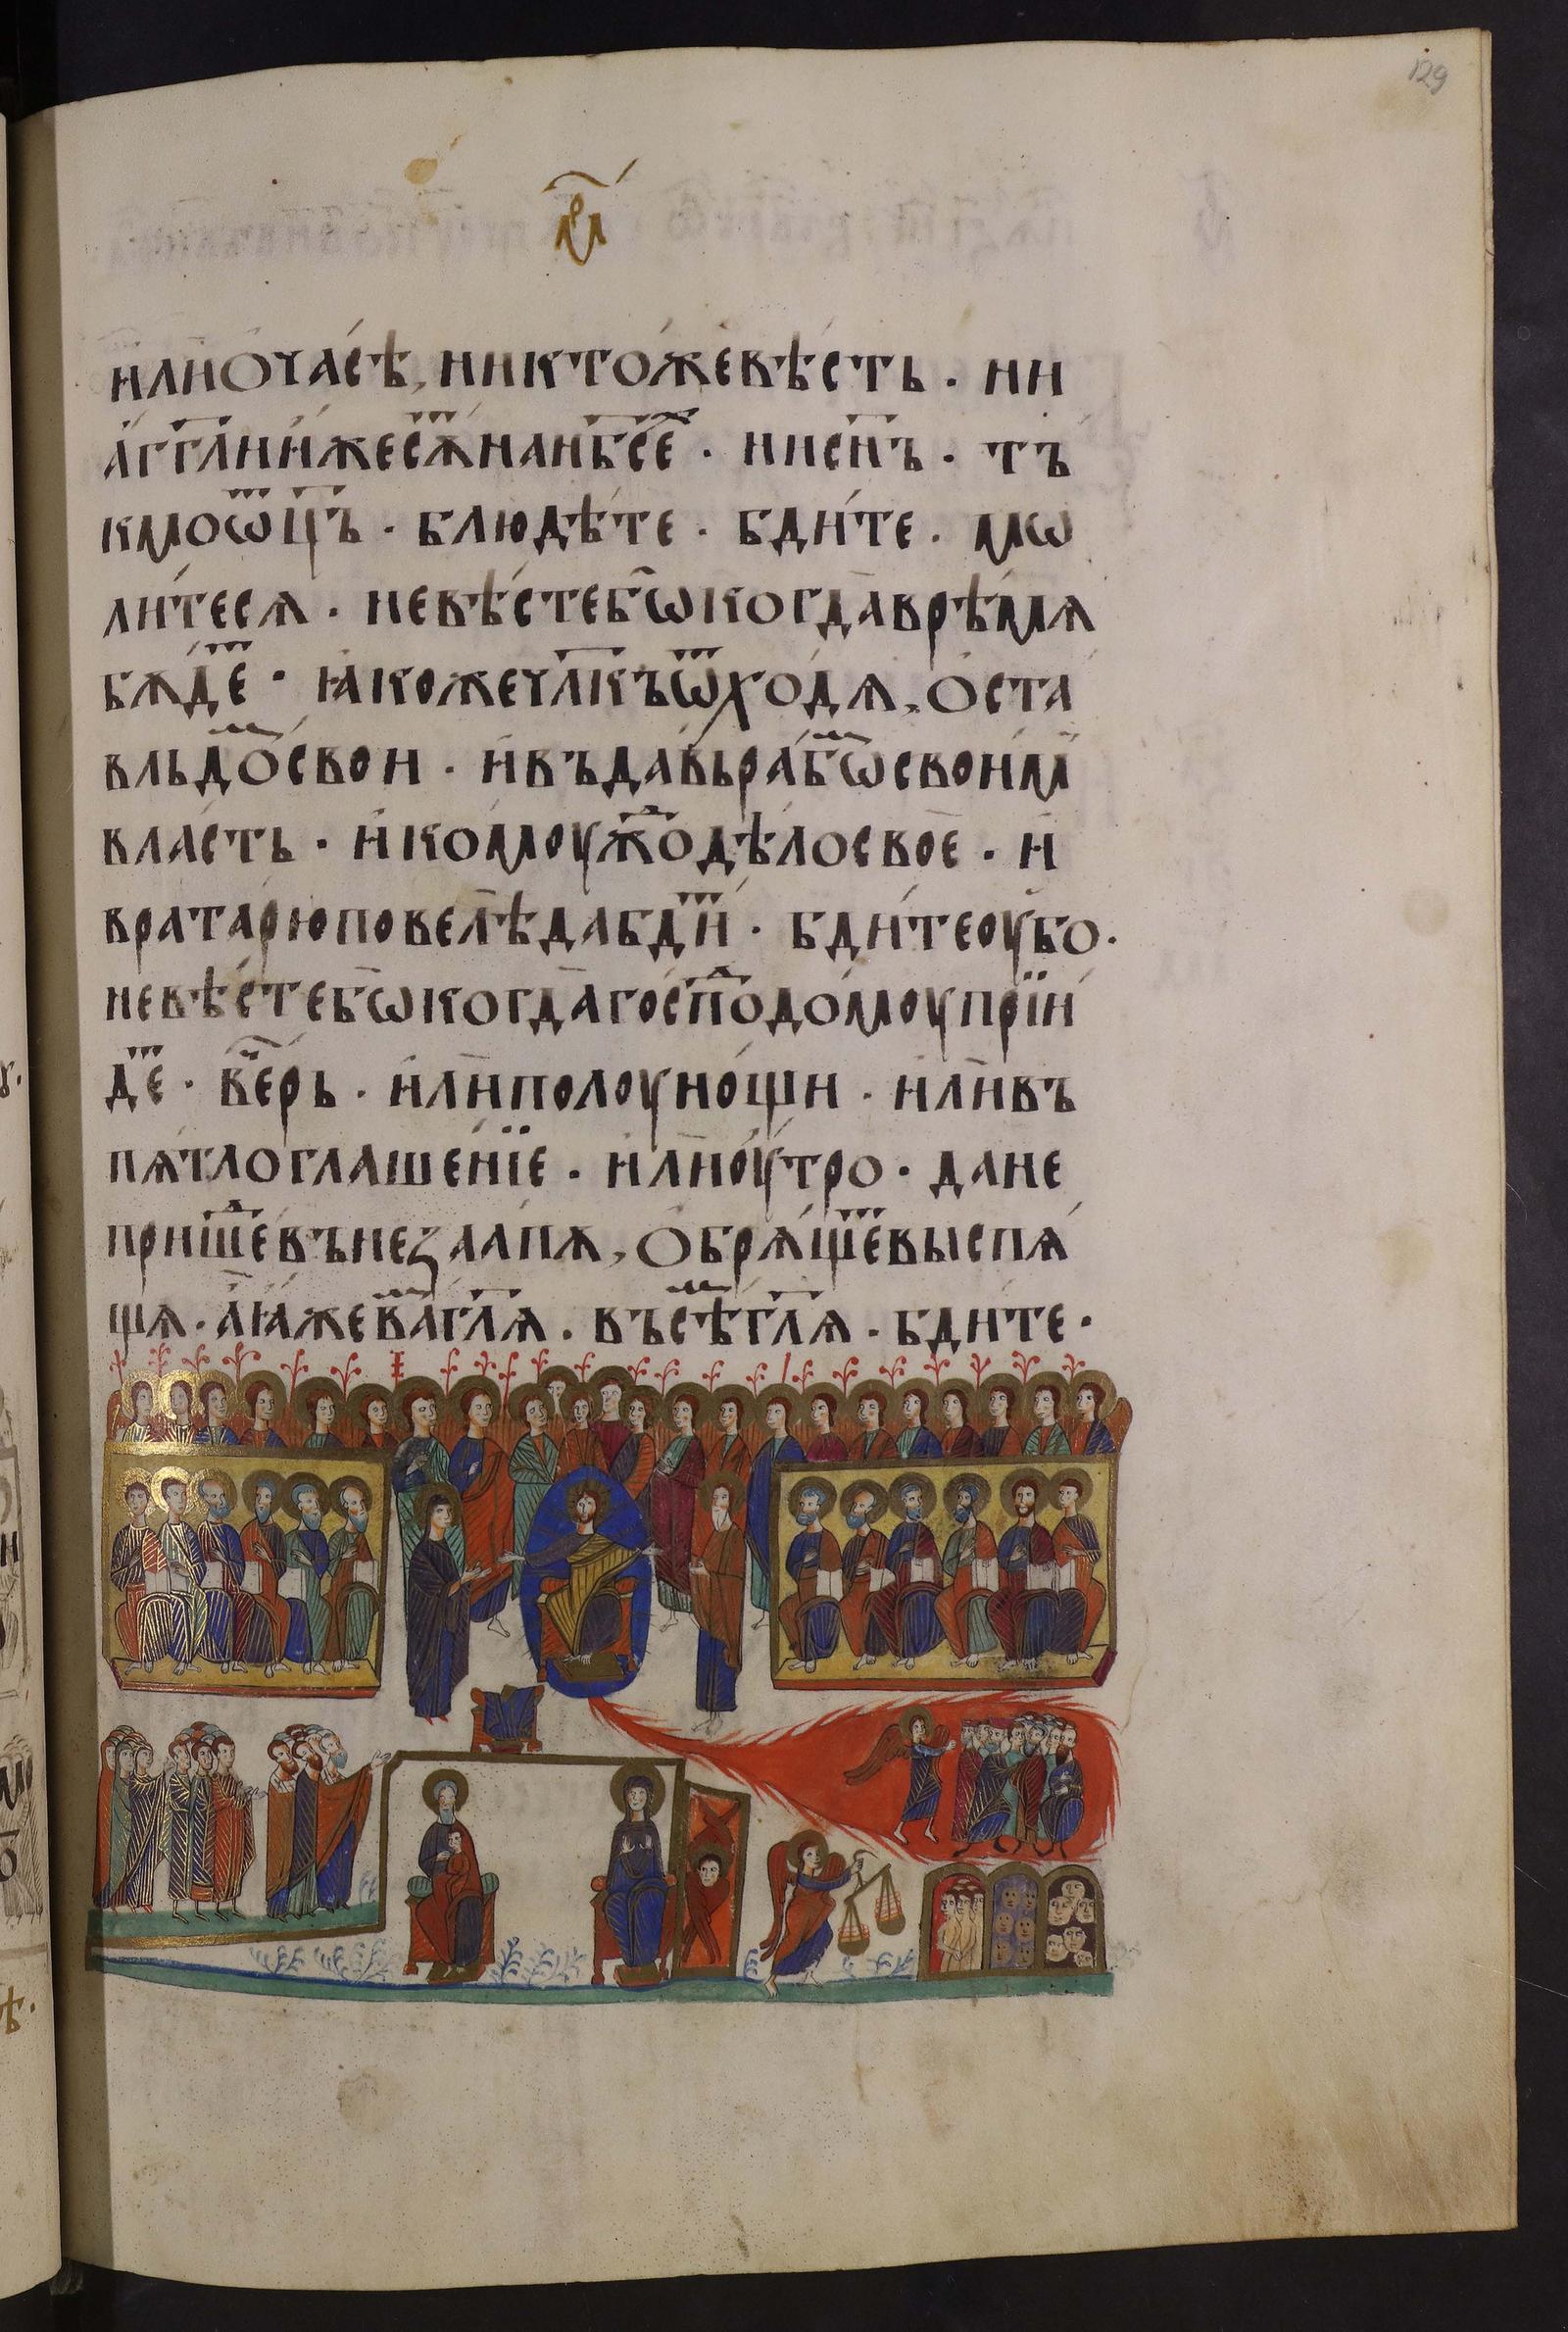 129
м҃
и҆лѝѡ҆ча́сѣ, никто́жевѣ́сть · ни
а҆́гг҃лии҆́жесѫ҃нанб҃се · нисн҃ъ · тъ
кмоѿц҃ъ · блюдѣ́те · бди́те · мѡ
ли́тесѧ · невѣ́стебѡкогда̀врѣ́мѧ
бѫ́д́е · ꙗ҆́кожечл҃къѿходѧ̀, о҆ста́
вльдо́свои · и҆въда́вьрабѡ́свои́м
вла́сть · и҆комоу́ждодѣ́лосвоѐ · и҆
врата́рюповелѣ̀дабди́ · бди́теоу҆бо ·
невѣ́стебѡкогда̀госпо́ддо́моупрїи́
де · ве́рь · и҆лѝполоуно́щи · и҆лѝвъ
пѧ́тлоглаше́нїе · и҆лѝоу҆́тро · дане
прише́въневꙁаа́пѫ, о҆брѧ́щевыспѧ́
щѧ · а҆ꙗ҆́жевагл҃ѧ · въсѣ́гл҃ѧ · бди́те ·